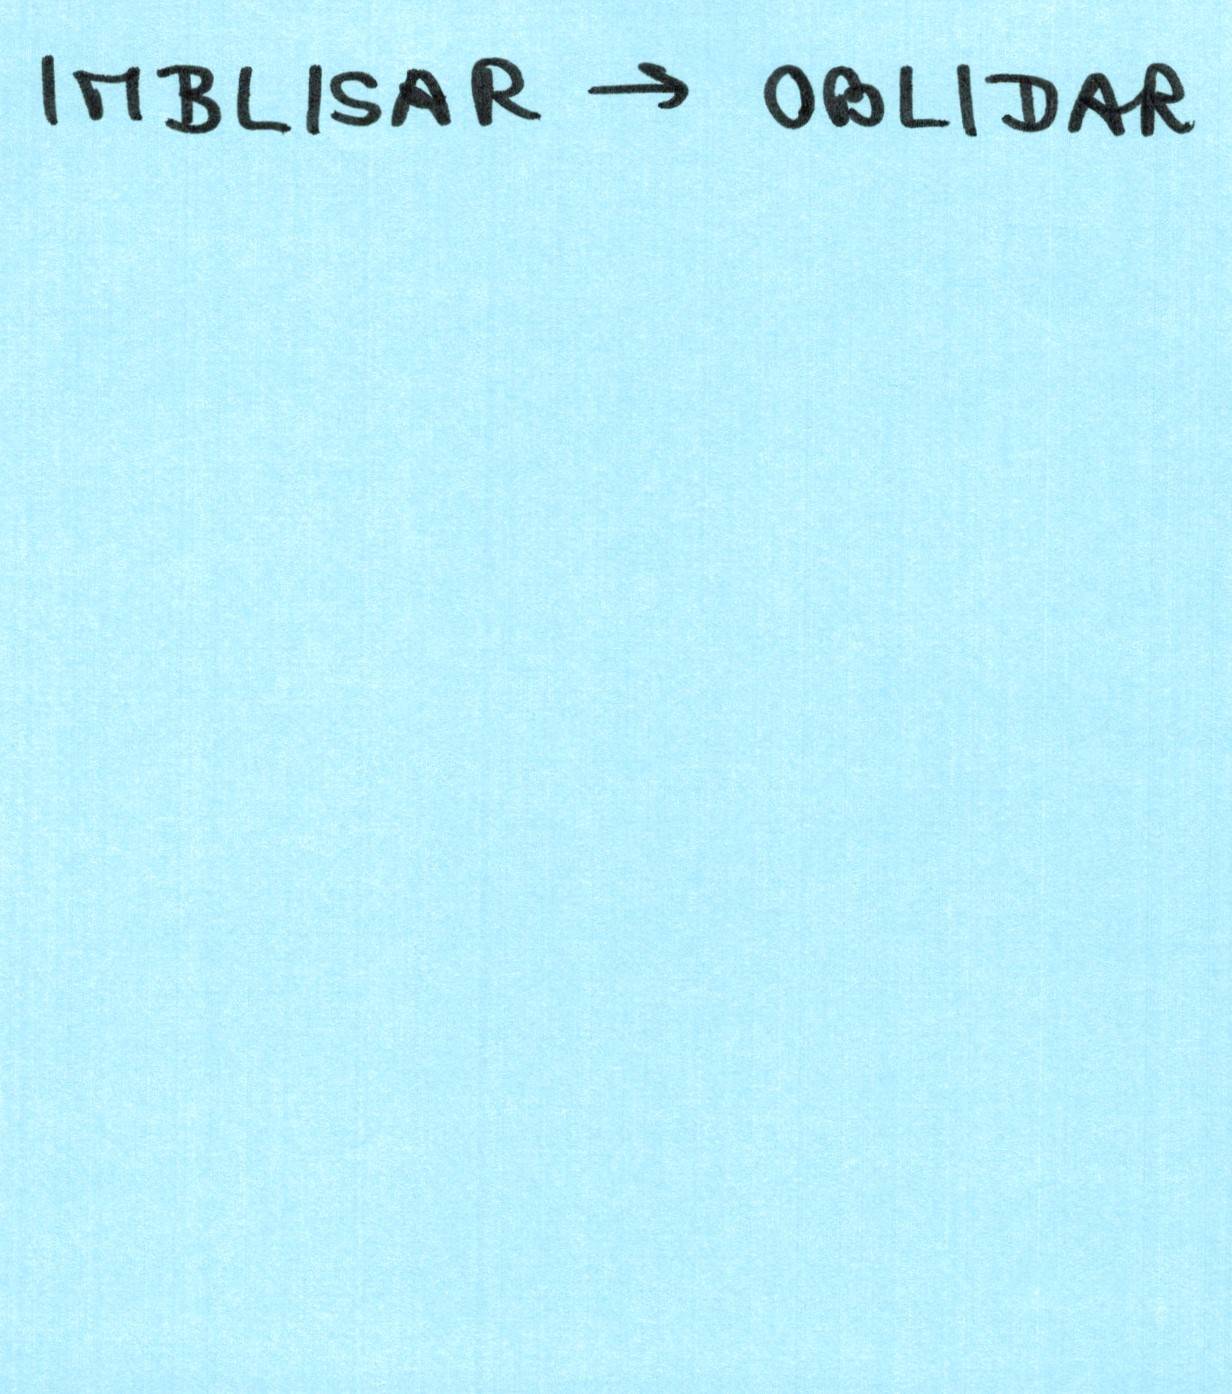 IMBLISAR → OBLIDAR